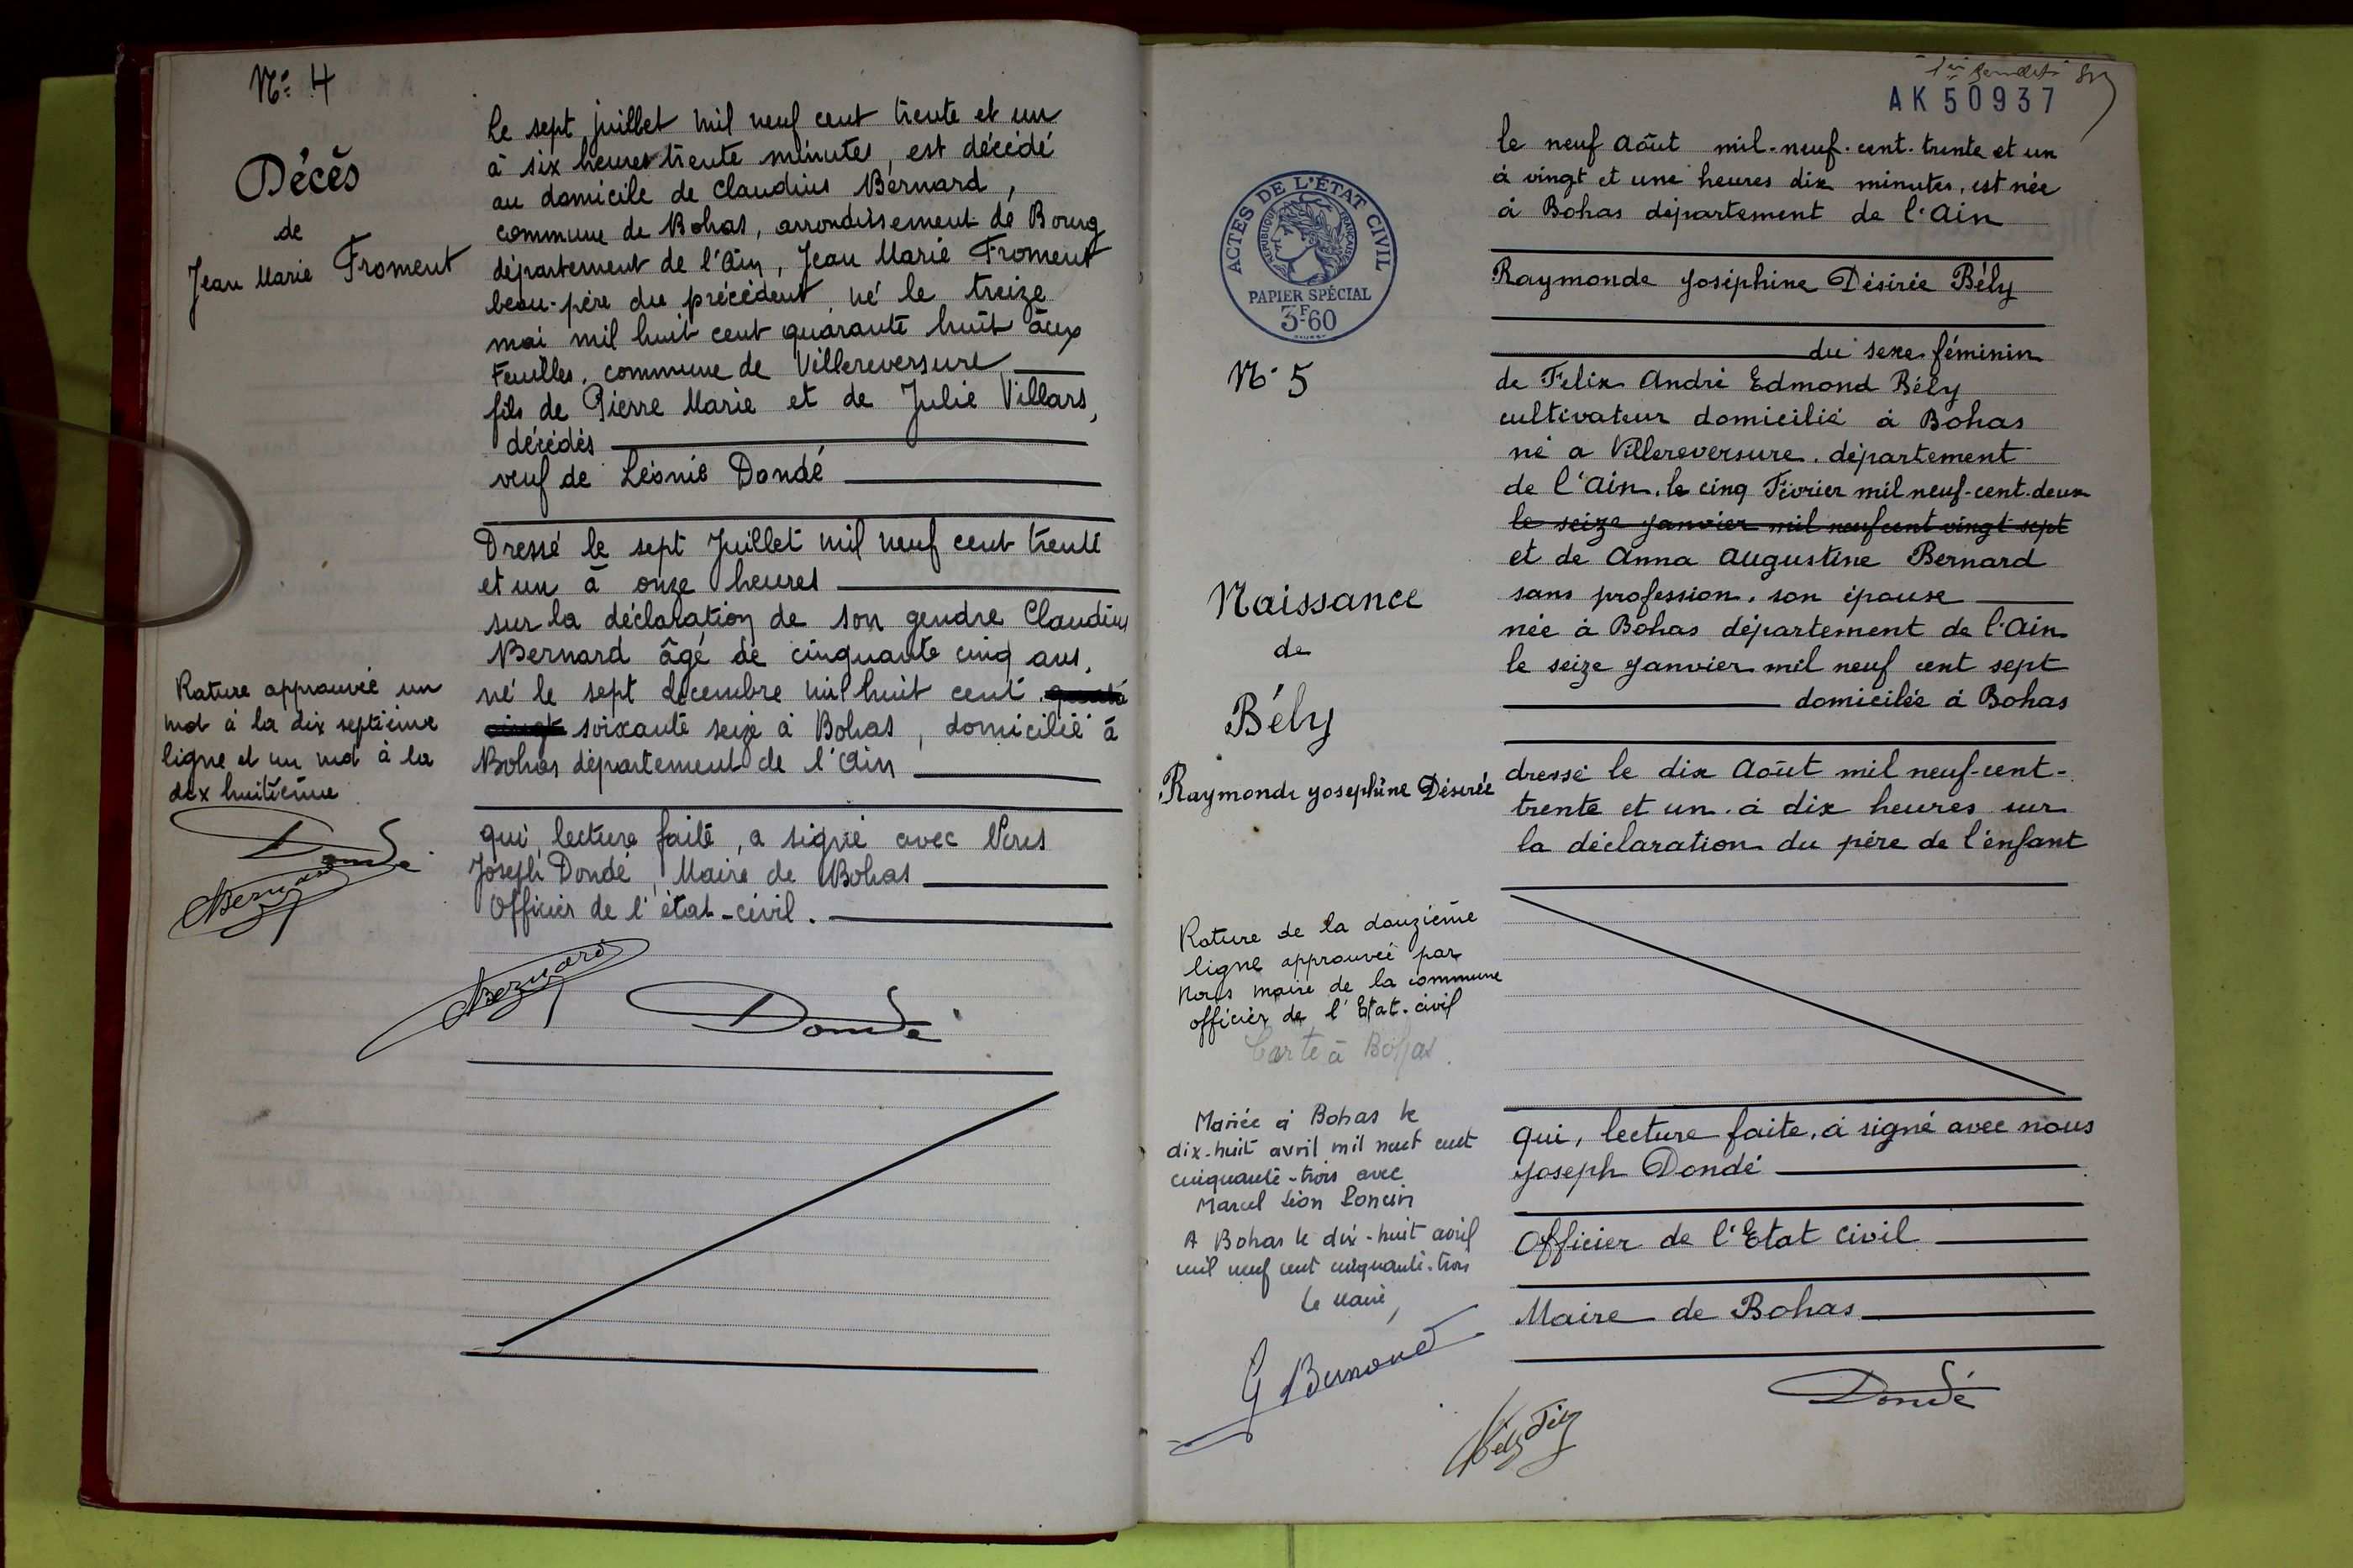 Nº 4
Décès
de
Jean Marie Froment
Le sept juillet mil neuf cent trente et un
à six heures trente minutes, est décédé
au domicile de Claudius Bernard,
commune de Bohas, arrondissement de Bourg
département de l'Ain, Jean Marie Froment
beau-père du précédent né le treize
mai mil huit cent quarante huit aux
Feuilles, commune de Villereversure
fils de Pierre Marie et de Julie Villars,
décédés
veuf de Léonie Dondé
Dressé le sept Juillet mil neuf cent trente
et un à onze heures
sur la déclaration de son gendre Claudius
Bernard âgé de cinquante cinq ans,
né le sept décembre mil huit cent
vingt soixante seize à Bohas, domicilié à
Bohas département de l'Ain
qui, lecture faite, a signé avec Nous
Joseph Dondé, Maire de Bohas
Officier de l'état-civil.
Rature approuvée un
mot à la dix septième
ligne et un mot à la
dix huitième
Dondé
Bernard
Bernard
Dondé
AK 50937
ACTES DE L'ÉTAT CIVIL
RÉPUBLIQUE FRANÇAISE
PAPIER SPÉCIAL
3F60
Nº 5
Naissance
de
Bély
Raymonde Joséphine Désirée
le neuf Août mil-neuf-cent-trente et un
à vingt et une heures dix minutes, est née
à Bohas département de l'Ain
Raymonde Joséphine Désirée Bély
du sexe féminin
de Felix André Edmond Bély
cultivateur domicilié à Bohas
né a Villereversure, département
de l'Ain, le cinq Février mil neuf-cent-deux
le seize Janvier mil neuf cent vingt sept
et de Anna Augustine Bernard
sans profession, son épouse
née à Bohas département de l'Ain
le seize Janvier mil neuf cent sept
domiciliée à Bohas
dressé le dix Août mil neuf-cent-
trente et un à dix heures sur
la déclaration du père de l'enfant
qui, lecture faite, a signé avec nous
Joseph Dondé
Officier de l'Etat Civil
Maire de Bohas
Dondé
Bély Félix
Rature de la douzième
ligne approuvée par
Nous maire de la commune
officier de l'Etat-civil
Carte à Bohas.
Mariée à Bohas le
dix-huit avril mil neuf cent
cinquante-trois avec
Marcel Léon Poncin
A Bohas le dix-huit avril
mil neuf cent cinquante-trois
Le Maire,
G Bernard